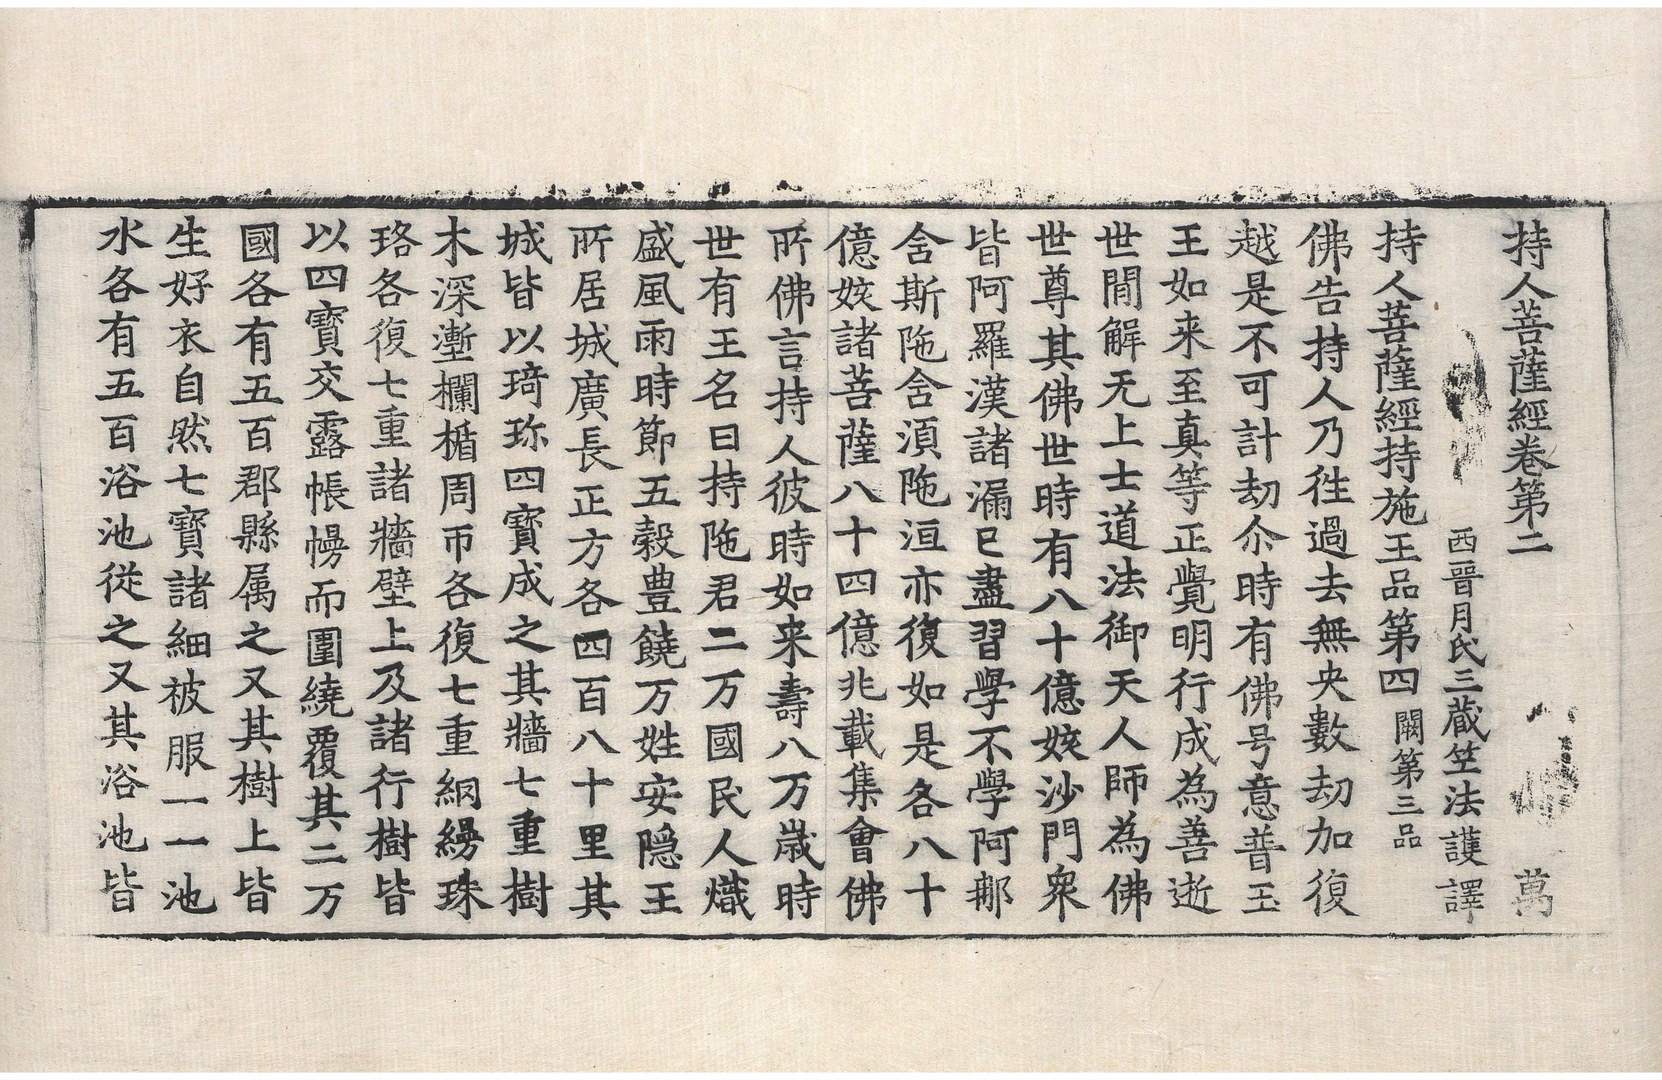 持人菩薩經卷第二 萬
西晉月氏三藏笁法護譯
持人菩薩經持施王品第四 闕第三品
佛告持人乃徃過去無央數劫加復
越是不可計劫尒時有佛号意普玉
王如来至真等正覺明行成為善逝
世閒解无上士道法御天人師為佛
世尊其佛世時有八十億姟沙門衆
皆阿羅漢諸漏已盡習學不學阿那
含斯陁含湏陁洹亦復如是各八十
億姟諸菩薩八十四億兆載集會佛
所佛言持人彼時如来壽八万歲時
世有王名曰持陁君二万國民人熾
盛風雨時節五穀豊饒万姓安隠王
所居城廣長正方各四百八十里其
城皆以琦珎四寶成之其牆七重樹
木深塹欄楯周帀各復七重網縵珠
珞各復七重諸牆壁上及諸行樹皆
以四寶交露帳幔而圍繞覆其二万
國各有五百郡縣属之又其樹上皆
生好衣自然七寶諸細被服一一池
水各有五百浴池從之又其浴池皆